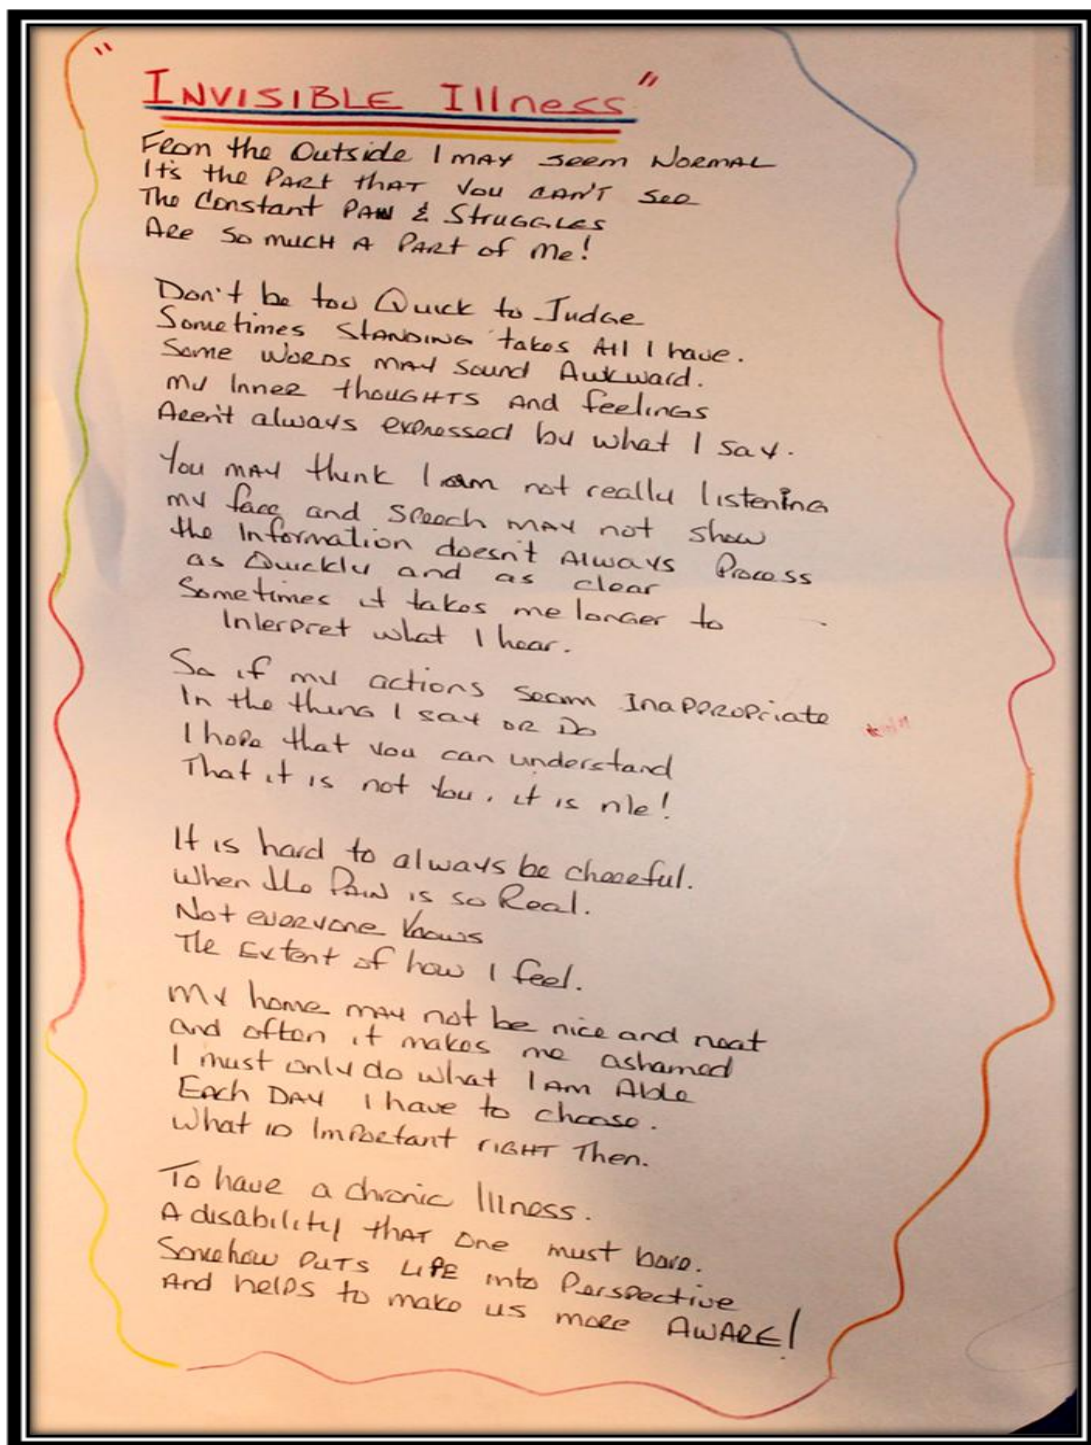 "INVISIBLE Illness"
From the Outside I MAY seem NORMAL
It's the PART THAT You CAN'T See
The Constant PAIN & STRUGGLES
ARE SO MUCH A PART of Me!
Don't be too Quick to Judge
Sometimes STANDING takes All I have.
Some WORDS MAY Sound Awkward.
my Inner thouGHTS And feelings
Aren't always expressed by what I say.
You MAY think I am not really listening
my face and Speech MAY not show
the Information doesn't Always Process
as Quickly and as clear
Sometimes it takes me longer to
Interpret what I hear.
So if my actions seam InaPPROPriate
In the thing I say OR Do
I hope that you can understand
That it is not You, it is Me!
It is hard to always be cheerful.
When the PAIN is so Real.
Not everyone Knows
The Extent of how I feel.
My home MAY not be nice and neat
and often it makes me ashamed
I must only do what I AM Able
EAch DAY I have to choose.
What is Important riGHT Then.
To have a chronic Illness.
A disability THAT One must bare.
Somehow PUTS LIFE into Perspective
And helps to make us more AWARE!